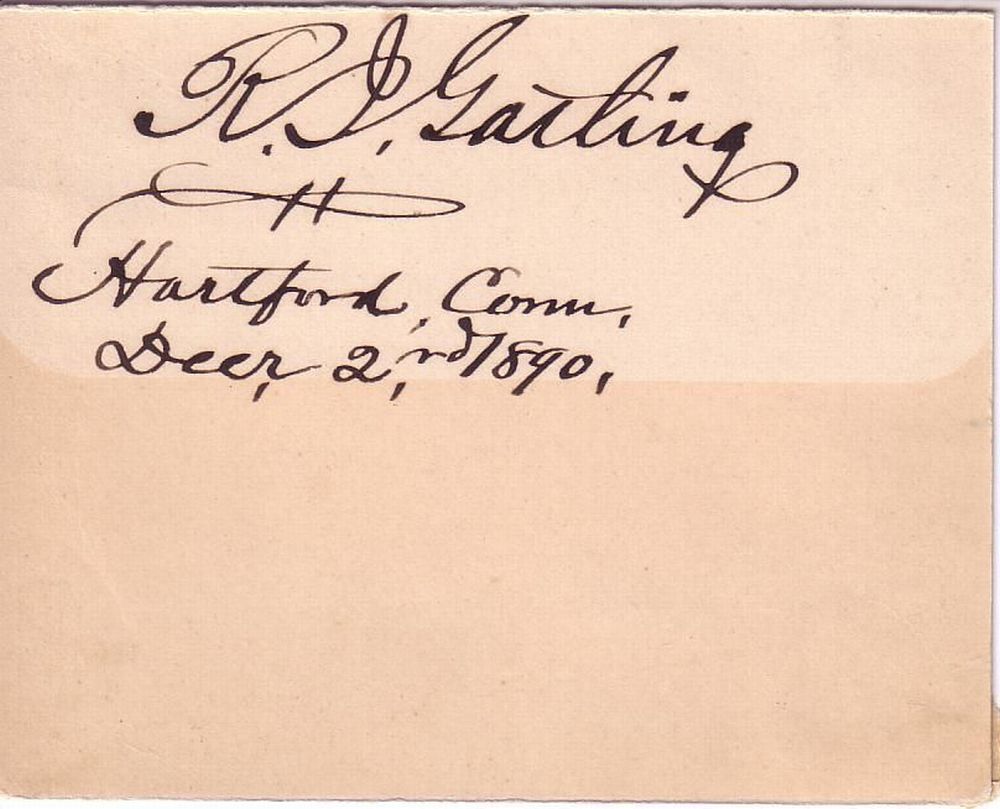 R. J. Gatling
Hartford, Conn.
Decr, 2,nd 1890,